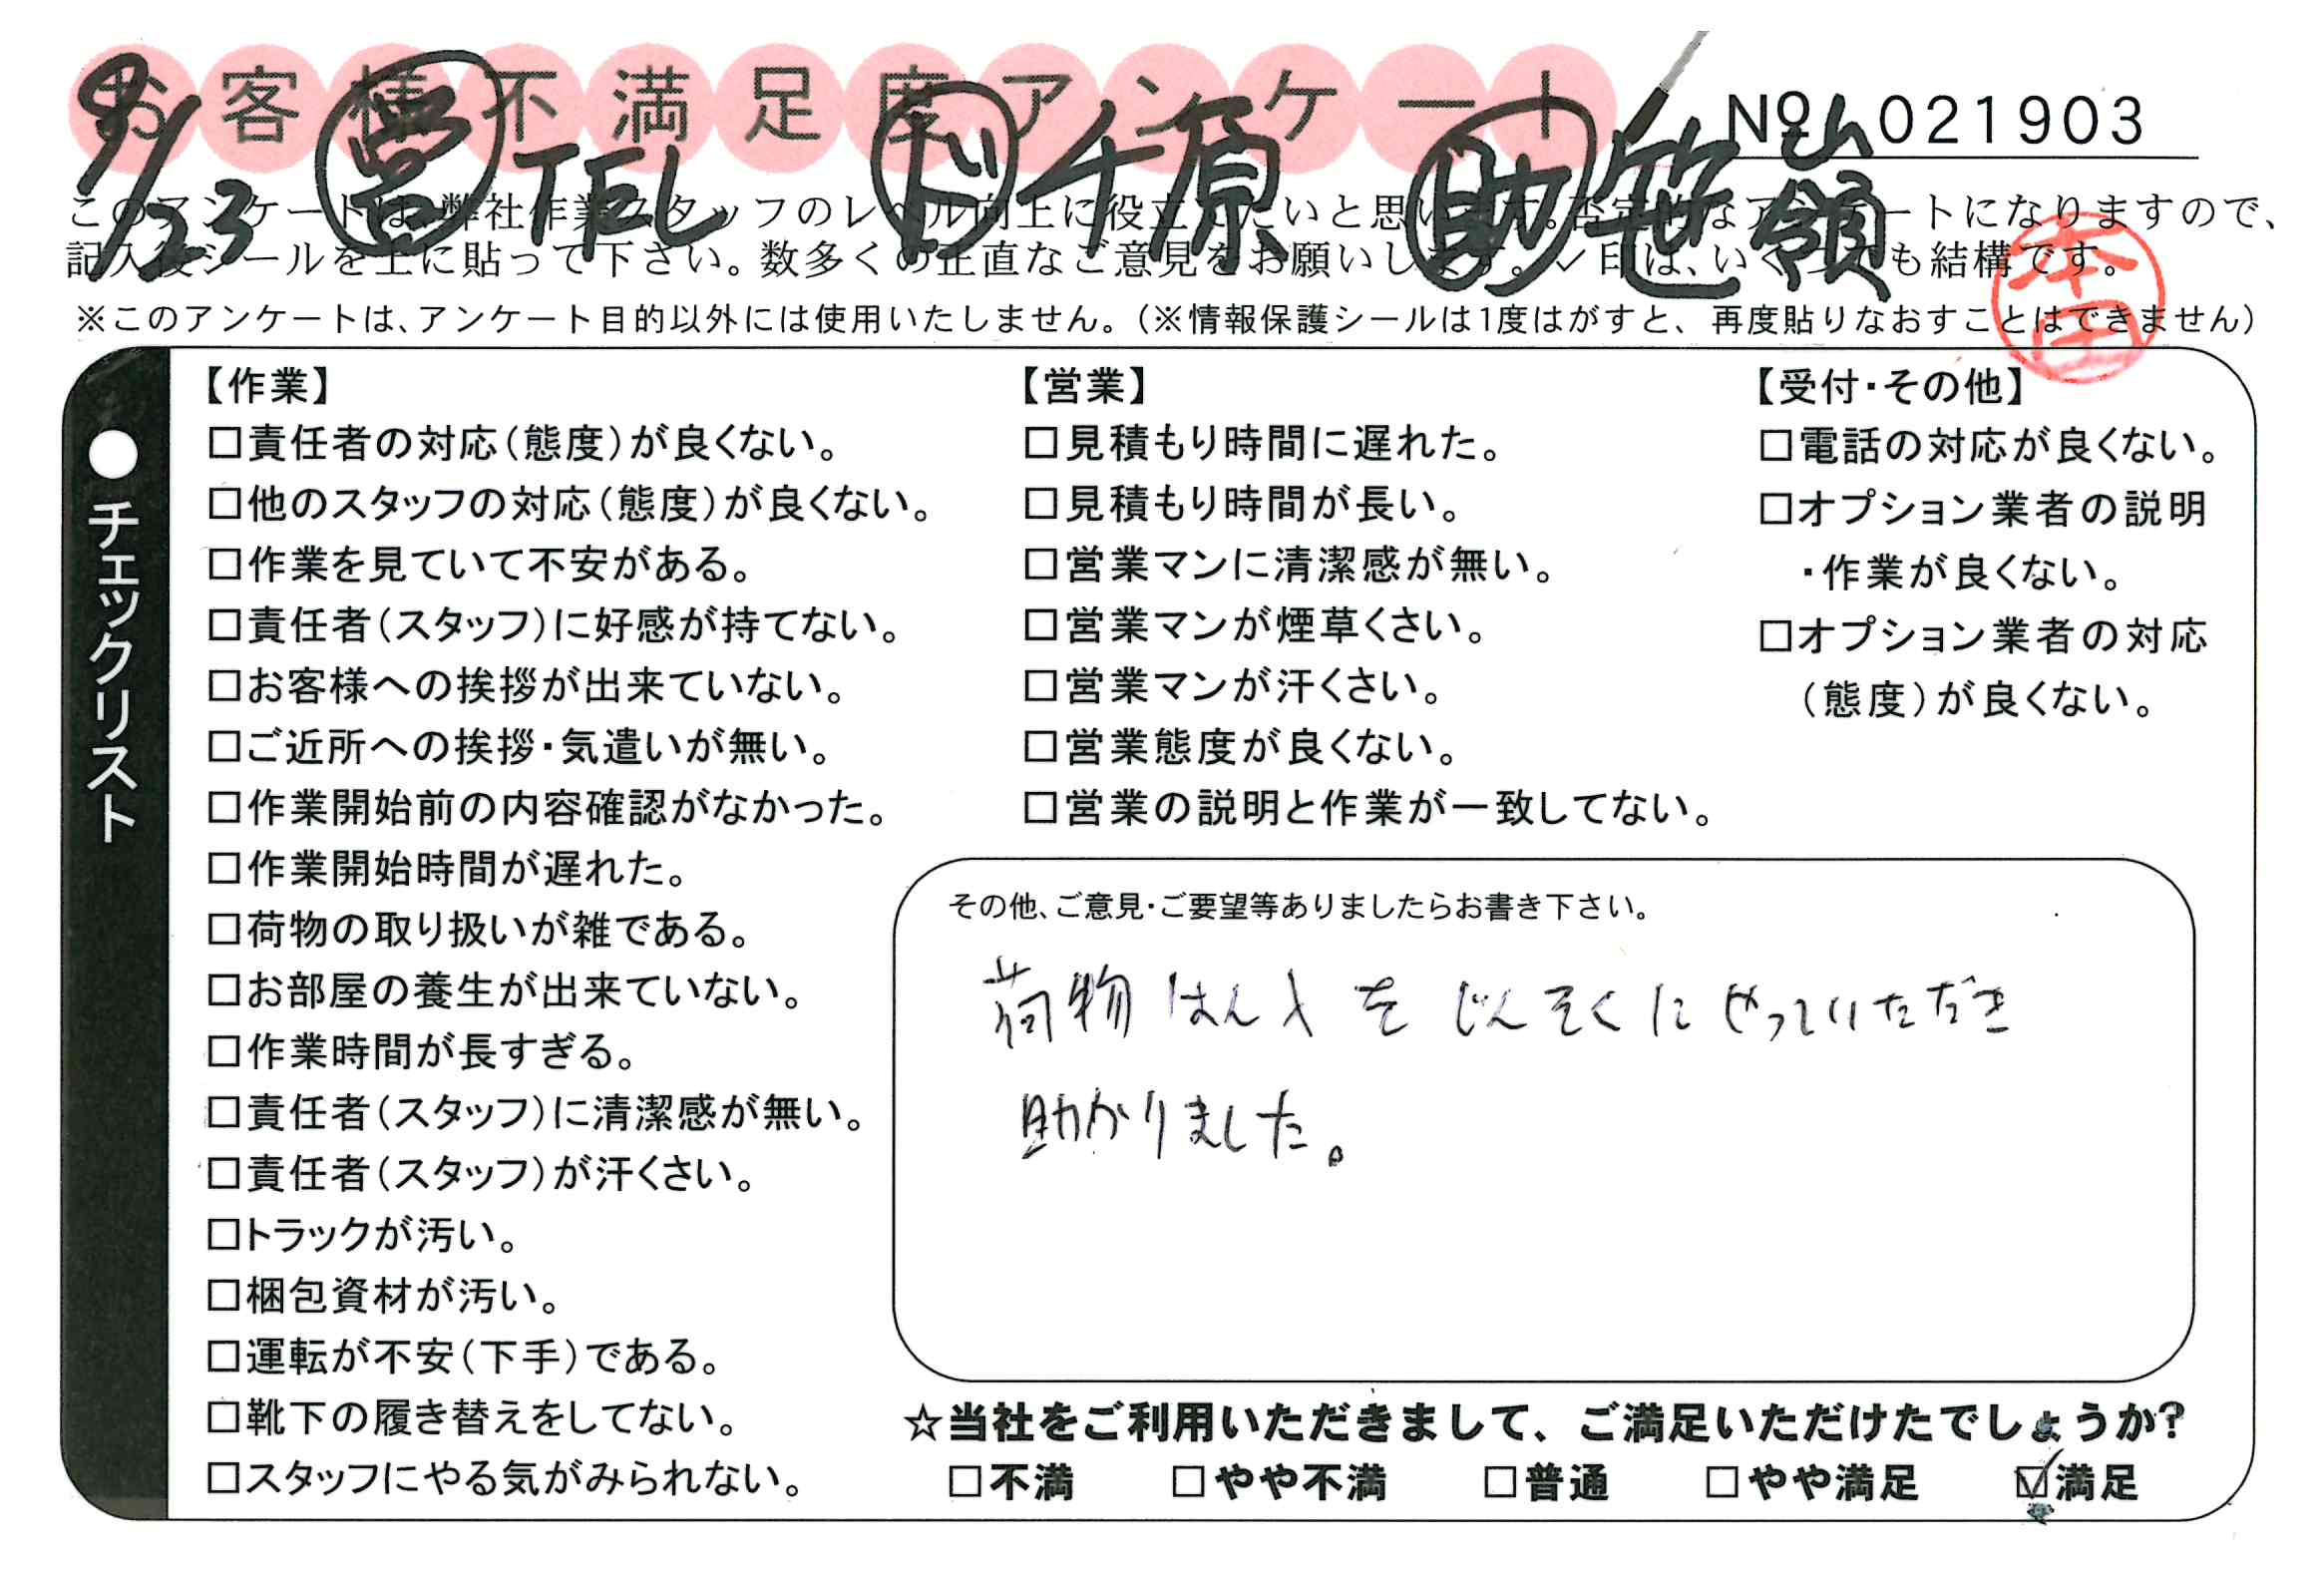 お客様不満足度アンケート
No 021903
9/23 営 TEL ド 千原 助 笹山 領
このアンケートは、弊社作業スタッフのレベル向上に役立てたいと思います。否定的なアンケートになりますので、
記入後シールを上に貼って下さい。数多くの正直なご意見をお願いします。✓印は、いくつでも結構です。
※このアンケートは、アンケート目的以外には使用いたしません。(※情報保護シールは1度はがすと、再度貼りなおすことはできません)
本田
●チェックリスト
【作業】
□責任者の対応(態度)が良くない。
□他のスタッフの対応(態度)が良くない。
□作業を見ていて不安がある。
□責任者(スタッフ)に好感が持てない。
□お客様への挨拶が出来ていない。
□ご近所への挨拶・気遣いが無い。
□作業開始前の内容確認がなかった。
□作業開始時間が遅れた。
□荷物の取り扱いが雑である。
□お部屋の養生が出来ていない。
□作業時間が長すぎる。
□責任者(スタッフ)に清潔感が無い。
□責任者(スタッフ)が汗くさい。
□トラックが汚い。
□梱包資材が汚い。
□運転が不安(下手)である。
□靴下の履き替えをしてない。
□スタッフにやる気がみられない。
【営業】
□見積もり時間に遅れた。
□見積もり時間が長い。
□営業マンに清潔感が無い。
□営業マンが煙草くさい。
□営業マンが汗くさい。
□営業態度が良くない。
□営業の説明と作業が一致してない。
【受付・その他】
□電話の対応が良くない。
□オプション業者の説明
・作業が良くない。
□オプション業者の対応
(態度)が良くない。
その他、ご意見・ご要望等ありましたらお書き下さい。
荷物はん入をじんそくにやっていただき
助かりました。
☆当社をご利用いただきまして、ご満足いただけたでしょうか?
□不満 □やや不満 □普通 □やや満足 ☑満足